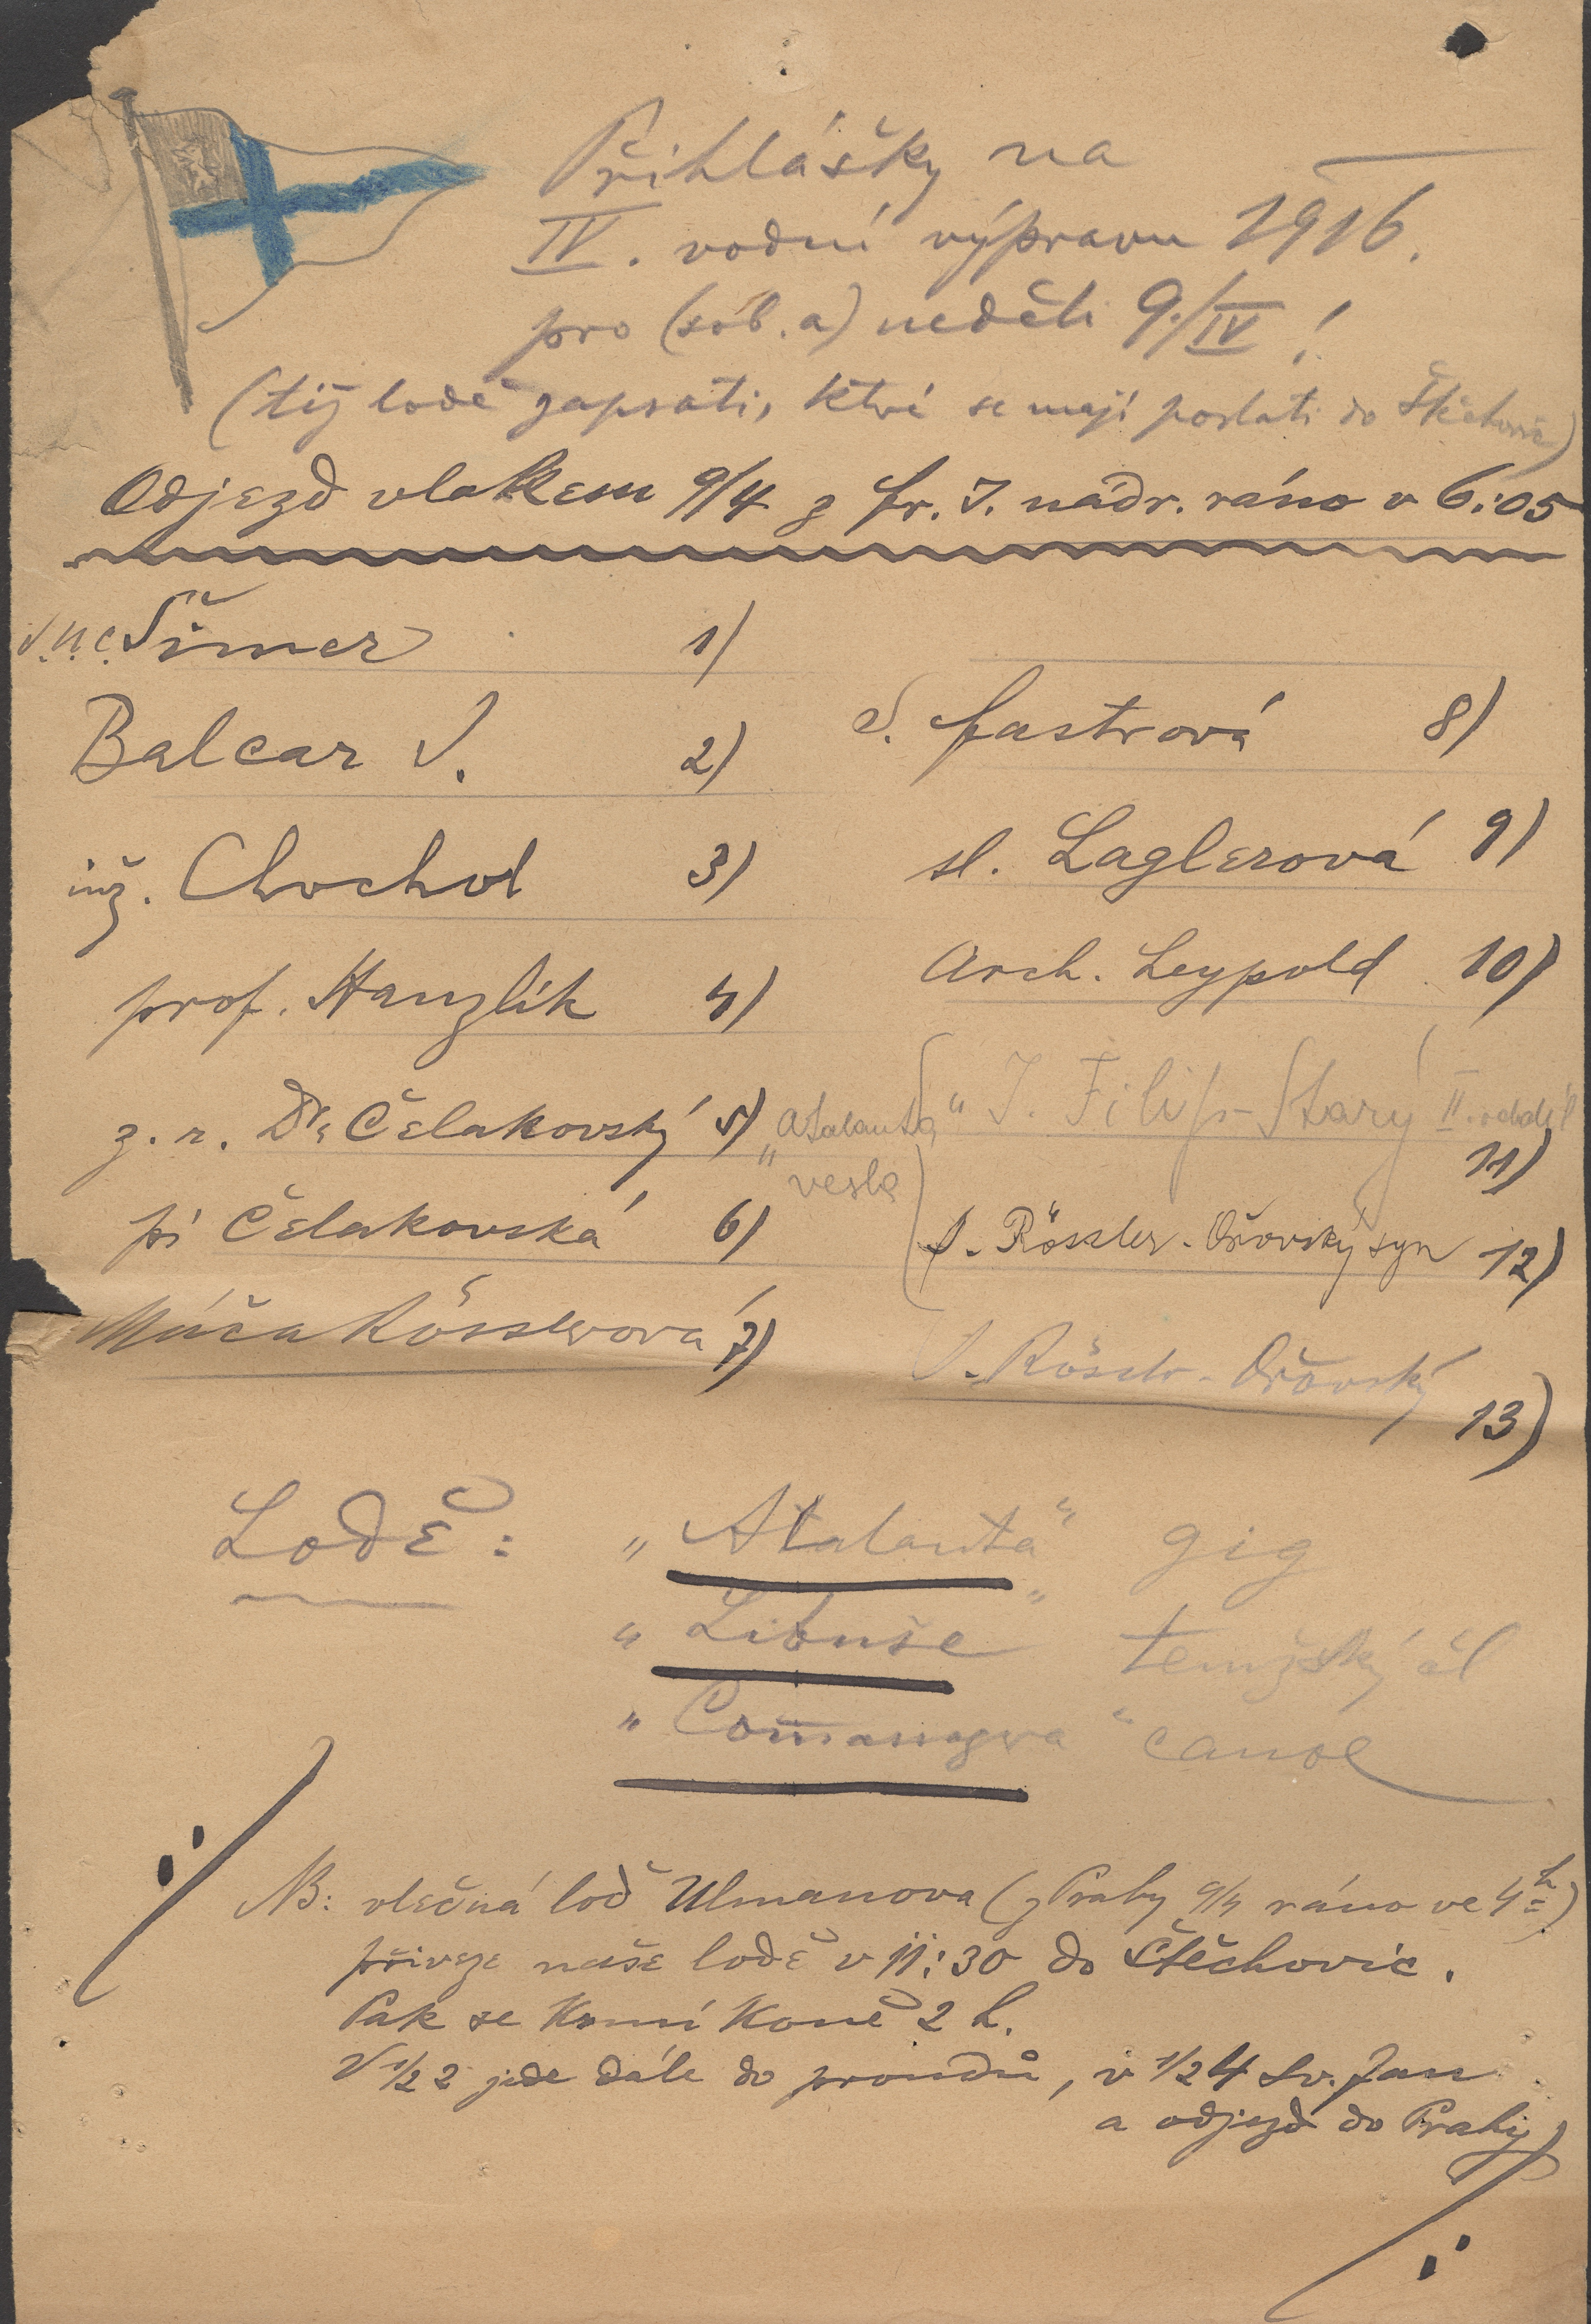 Přihlášky na
IV. vodní výpravu 1916.
pro (sob. a) neděli 9./IV !
(též lodě zapsati, které se mají poslati do Štěchovic)
Odjezd vlakem 9/4 z Fr. J. nádr. ráno v 6:05
Šimer 1)
Balcar V. 2)
inž. Chochol 3)
prof. Hanzlík 4)
z. r. Dr. Čelakovský 5)
pí Čelakovská 6)
Máča Rösslerová 7)
S. Fastrová 8)
sl. Laglerová 9)
Arch. Leypold 10)
„Atalanta“ J. Filip-Starý II. 11)
vesla
J. Rössler-Ořovský syn 12)
J. Rössler-Ořovský 13)
Lodě: „Atalanta“ gig
„Libuše“ temžský čl
„ “ canoe
NB: vlečná loď Ulmanova (z Prahy 9/4 ráno ve 4h)
přiveze naše lodě v 11:30 do Štěchovic.
Pak se krmí koně 2 h.
V 1/2 2 jede dále do proudů, v 1/2 4 Sv. Jan
a odjezd do Prahy